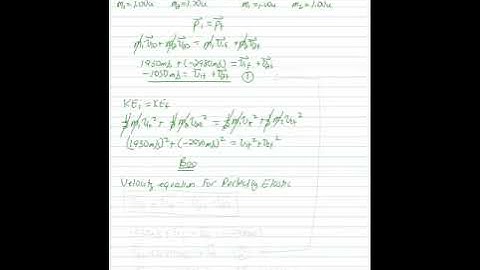 m₁=1.00u m₂=1.00u m₁=1.00u m₂=1.00u
p⃗i = p⃗f
m₁v⃗₁₀ + m₂v⃗₂₀ = m₁v⃗₁f + m₂v⃗₂f
1930m/s + (-2980m/s) = v⃗₁f + v⃗₂f
-1050m/s = v⃗₁f + v⃗₂f ①
KEi = KEf
½m₁v₁₀² + ½m₂v₂₀² = ½m₁v₁f² + ½m₂v₂f²
(1930m/s)² + (-2980m/s)² = v₁f² + v₂f²
Boo
Velocity equation For Perfectly Elastic